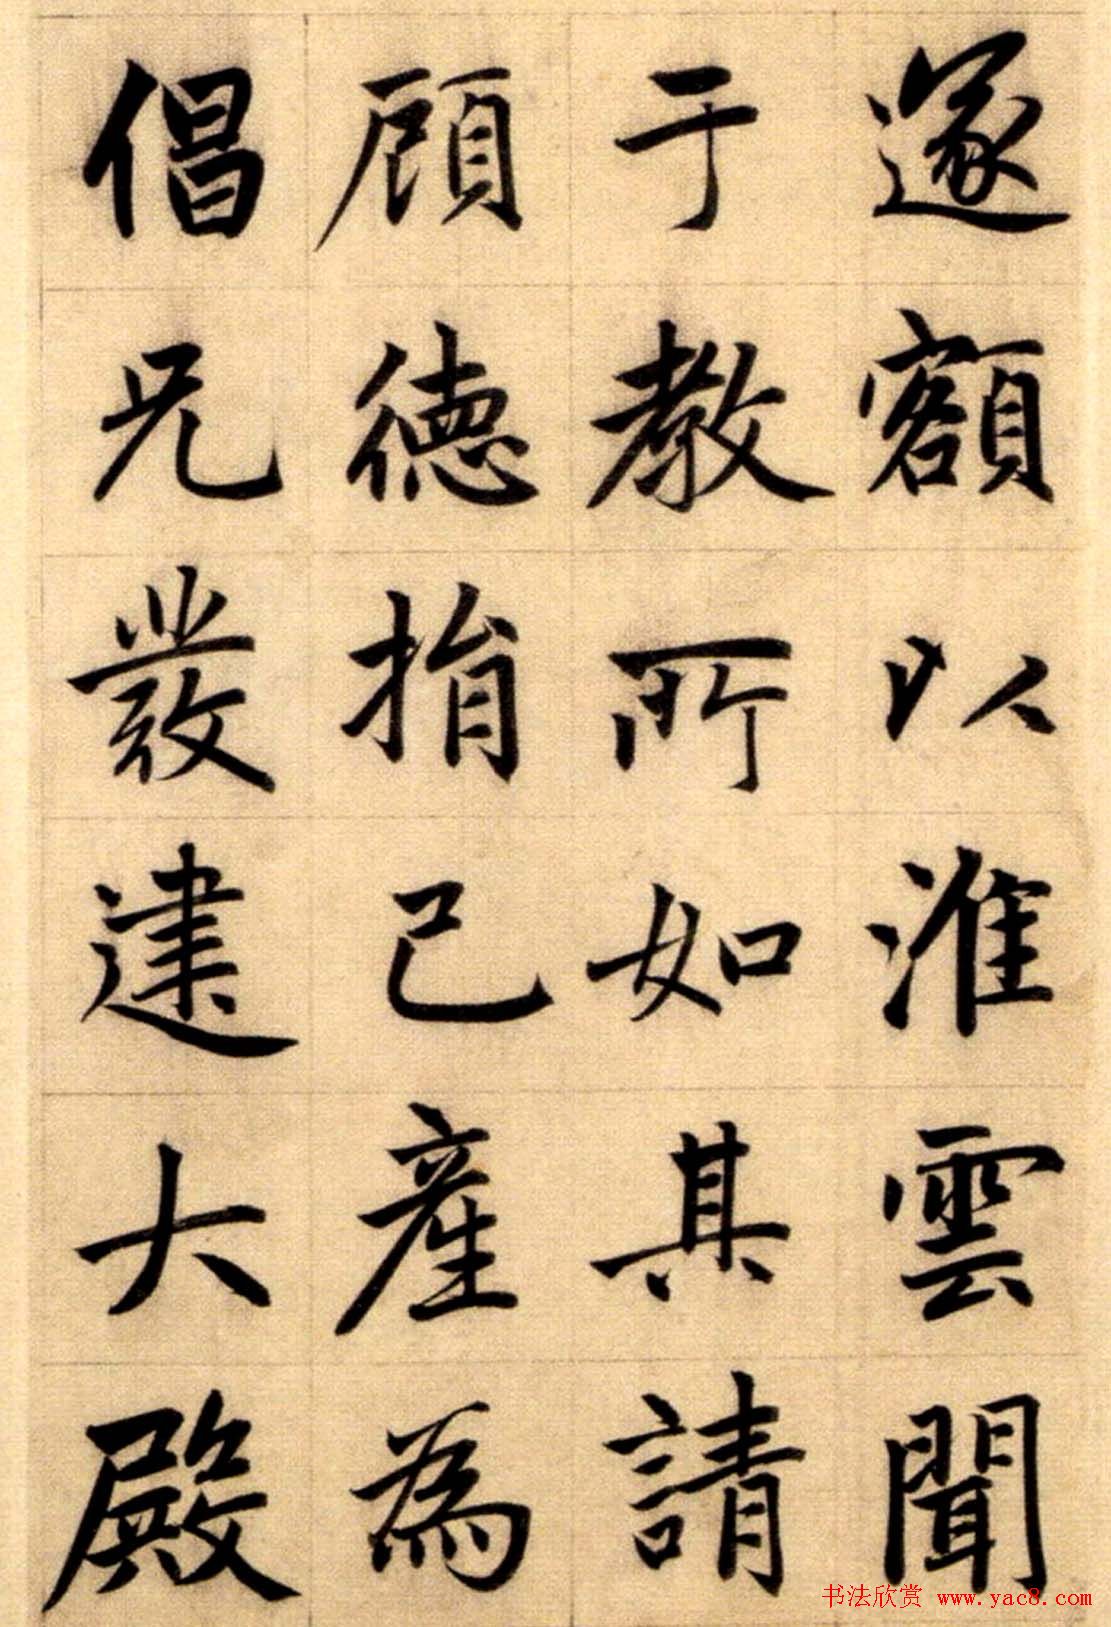 遂額以淮雲聞
于教所如其請
顧德指己產為
倡凡發建大殿
书法欣赏 www.yac8.com